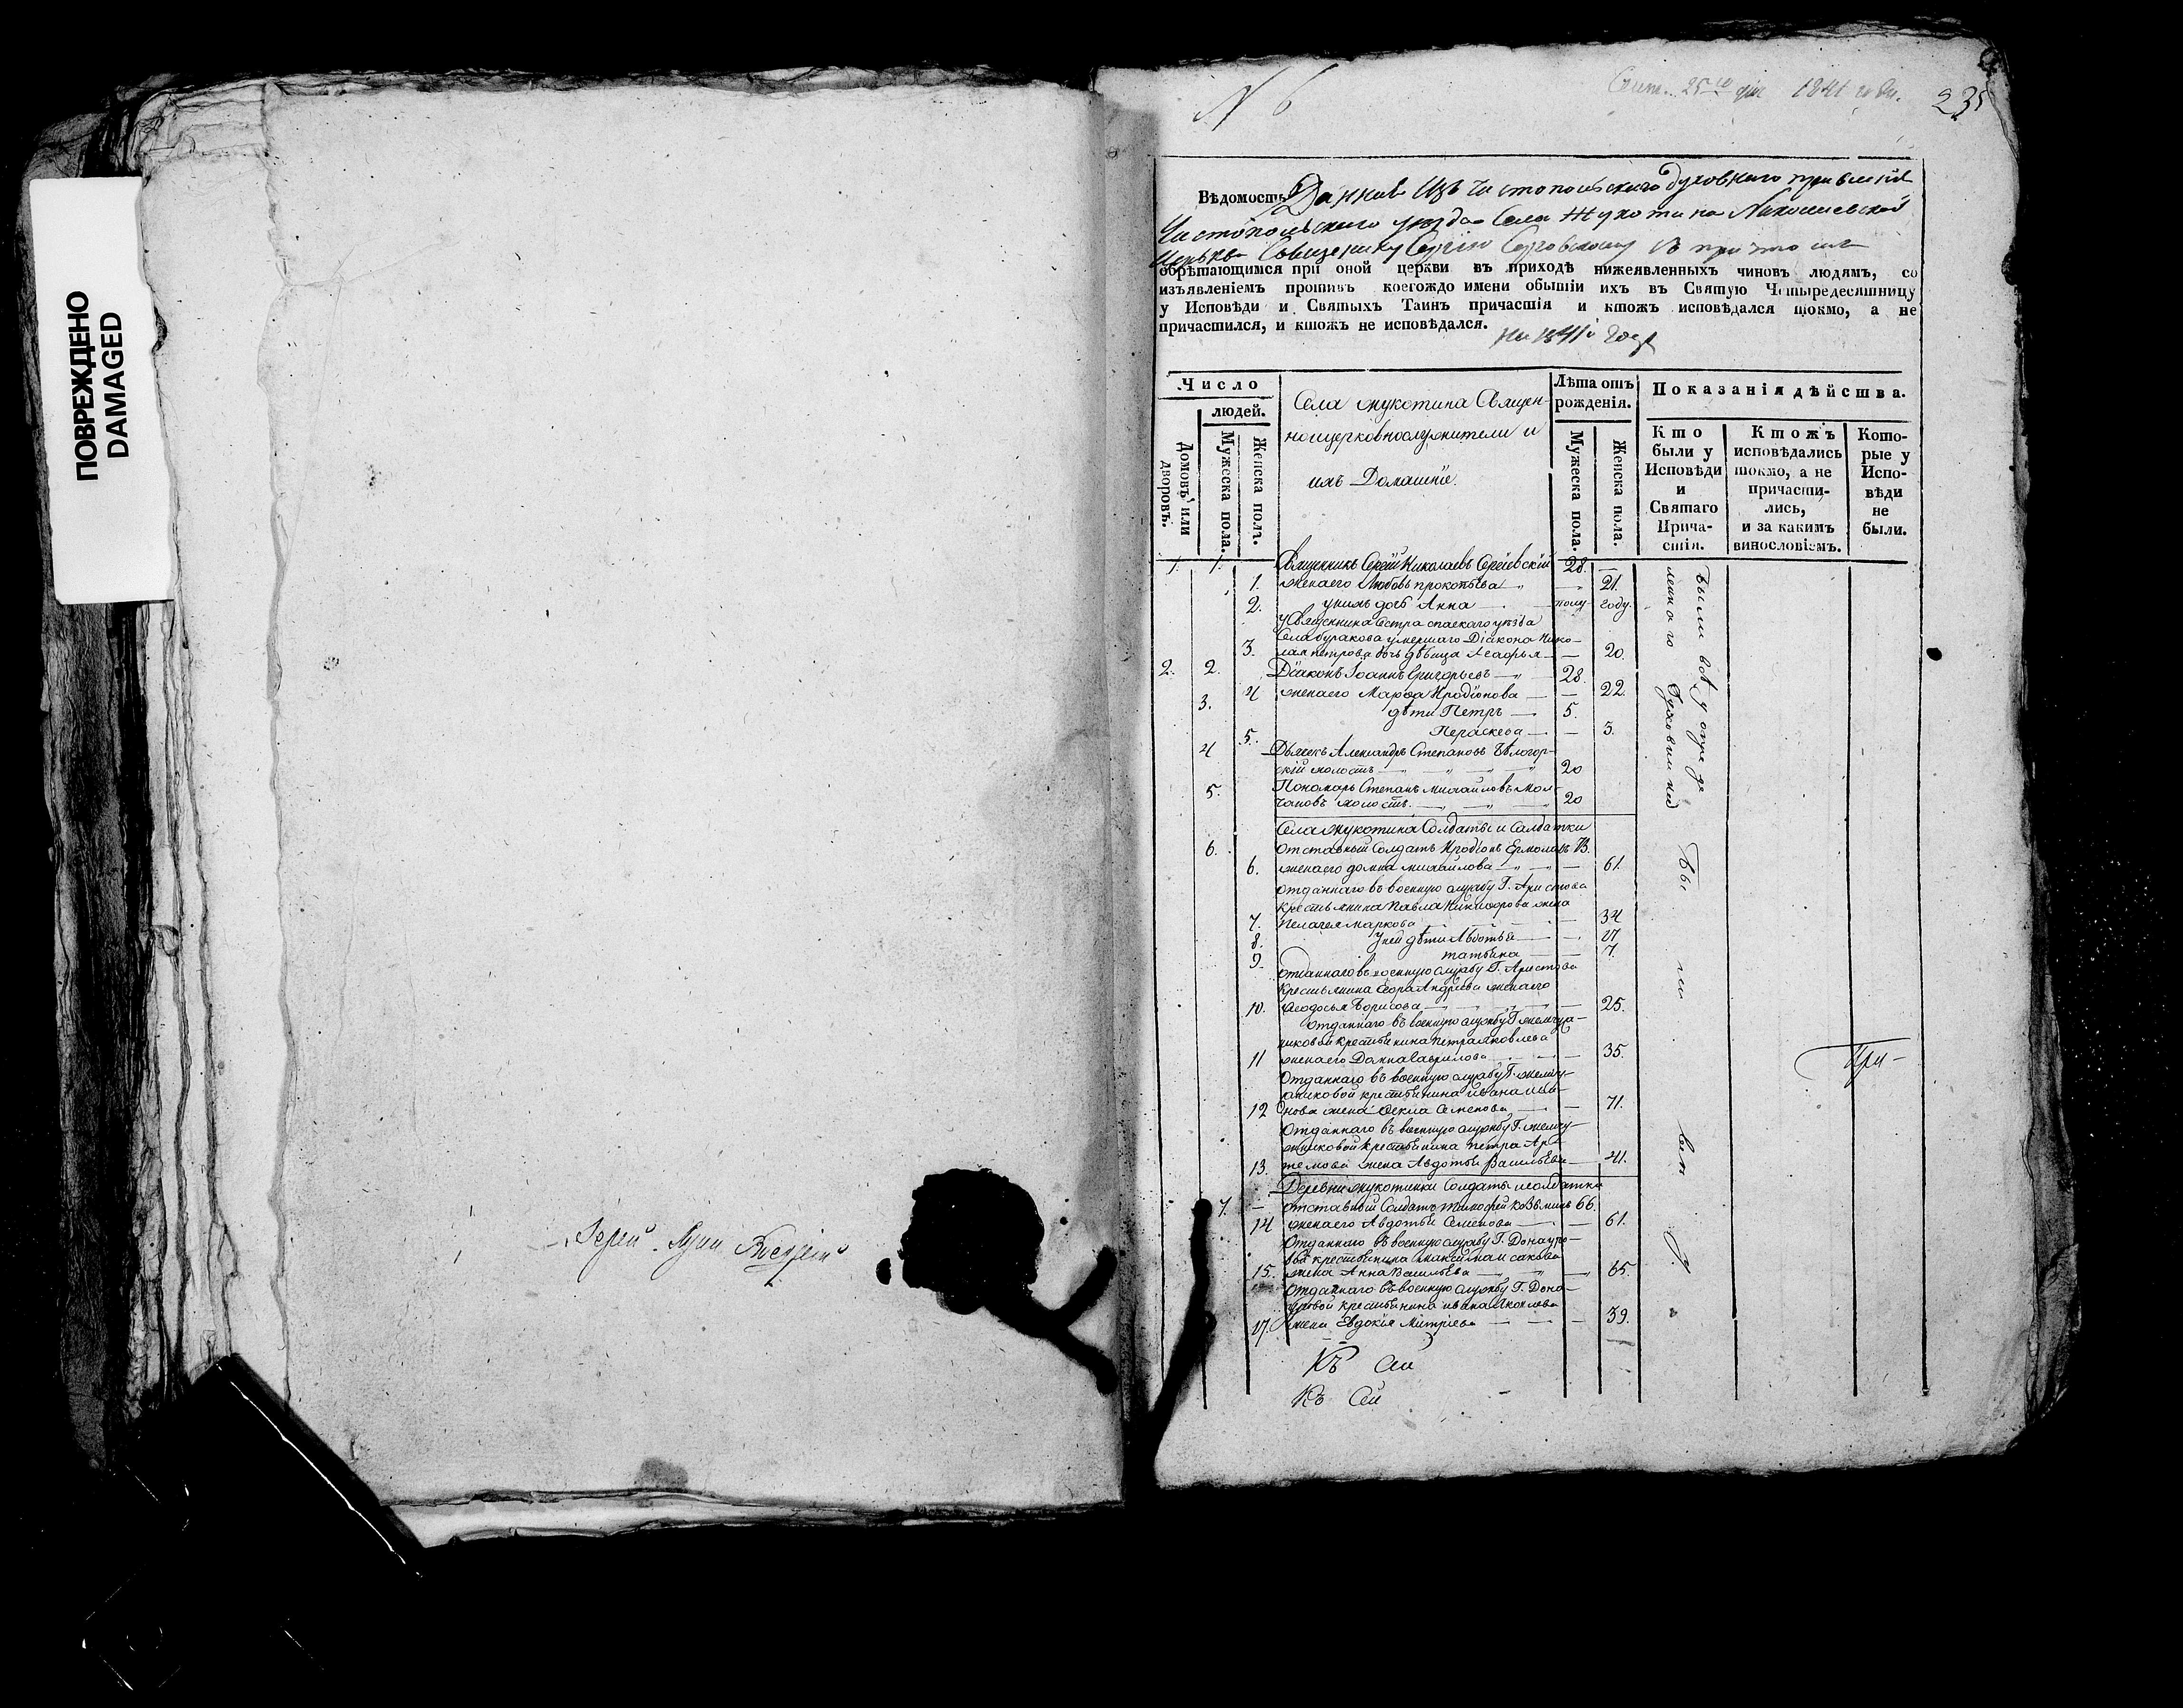 ПОВРЕЖДЕНО
DAMAGED
N 6
1841
235
Вѣдомость Данная Изъ Чистопольскаго Духовнаго правленія
Чистопольскаго уезда Села Жукотина Николаевской
Церкви Священнику Сергію Сергіевскому съ причтомъ
обрѣтающимся при оной церкви въ приходѣ нижеявленныхъ чиновъ людямъ, со
изъявленіемъ противъ коегождо имени обытіи ихъ въ Святую Четыредесятницу
у Исповѣди и Святыхъ Таинъ причастія и ктожъ исповѣдался токмо, а не
причастился, и ктожъ не исповѣдался.
на 1841й годъ
Число
людей.
Домовъ, или дворовъ.
Мужеска пола.
Женска пола.
Села жукотина Священ-
ноцерковнослужители и
ихъ Домашніе.
Лѣта отъ
рожденія.
Мужеска пола.
Женска пола.
Показанія дѣйства.
Кто
были у
Исповѣди
и
Святаго
Прича-
стія.
Ктожъ
исповѣдались
токмо, а не
причасти-
лись,
и за какимъ
винословіемъ.
Кото-
рые у
Испо-
вѣди
не
были.
1. 1. Священникъ Сергій Николаевъ Сергіевскій 28. —
1. жена его Любовь прокопьева 21.
2. у нихъ дочь Анна — полу- году.
у Священника Сестра спаскаго уезда
Села буракова умершаго Діакона Нико-
3. лая петрова дочь девица Агафья — 20.
2. 2. Діаконъ Іоаннъ Григорьевъ — 28.
4 жена его Марфа Иродіонова — 22.
3. дѣти Петръ — 5.
5. Пераскева — 3.
4 Дьячекъ Александръ Степановъ Бѣлогор-
скій холостъ — 20
5. Пономарь Степанъ михайловъ Мол-
чановъ холостъ. — 20
Села жукотина Солдаты и Салдатки
6. Отставный Солдатъ Иродіонъ Ермолаевъ 73.
6. жена его домна михайлова — 61.
отданнаго въ военную службу Г. Аристова
крестьянина Павла Никифорова жена
7. Пелагея маркова — 34
8. у ней дѣти Авдотья — 17
9. татьяна — 7.
отданнаго въ военную службу Г. Аристова
крестьянина Егора Андреева жена его
10. Феодосья Борисова — 25.
Отданнаго въ военную службу Г. жемчуж-
никовой крестьянина петра яковлева
11 жена его Домна Гаврилова — 35.
Отданнаго въ военную службу Г. жемчу-
жниковой крестьянина ивана ива-
12 нова жена Фекла Семенова — 71.
Отданнаго въ военную службу Г. жемчу-
жниковой крестьянина петра Ар-
13. темова жена Авдотья Васильева — 41.
Деревни жукотинки Солдаты и солдатки
7. — отставной Солдатъ тимофей козьминъ 66.
14 жена его Авдотья Семенова — 61.
Отданнаго въ военную службу Г. Донауро-
вой крестьянина максима исакова
15. жена Анна Васильева — 65.
Отданнаго въ военную службу Г. Дона-
уровой крестьянина ивана яковлева
17. жена Евдокія Митріева — 39.
Къ Сей
Къ Сей
Были
При-
Іерей